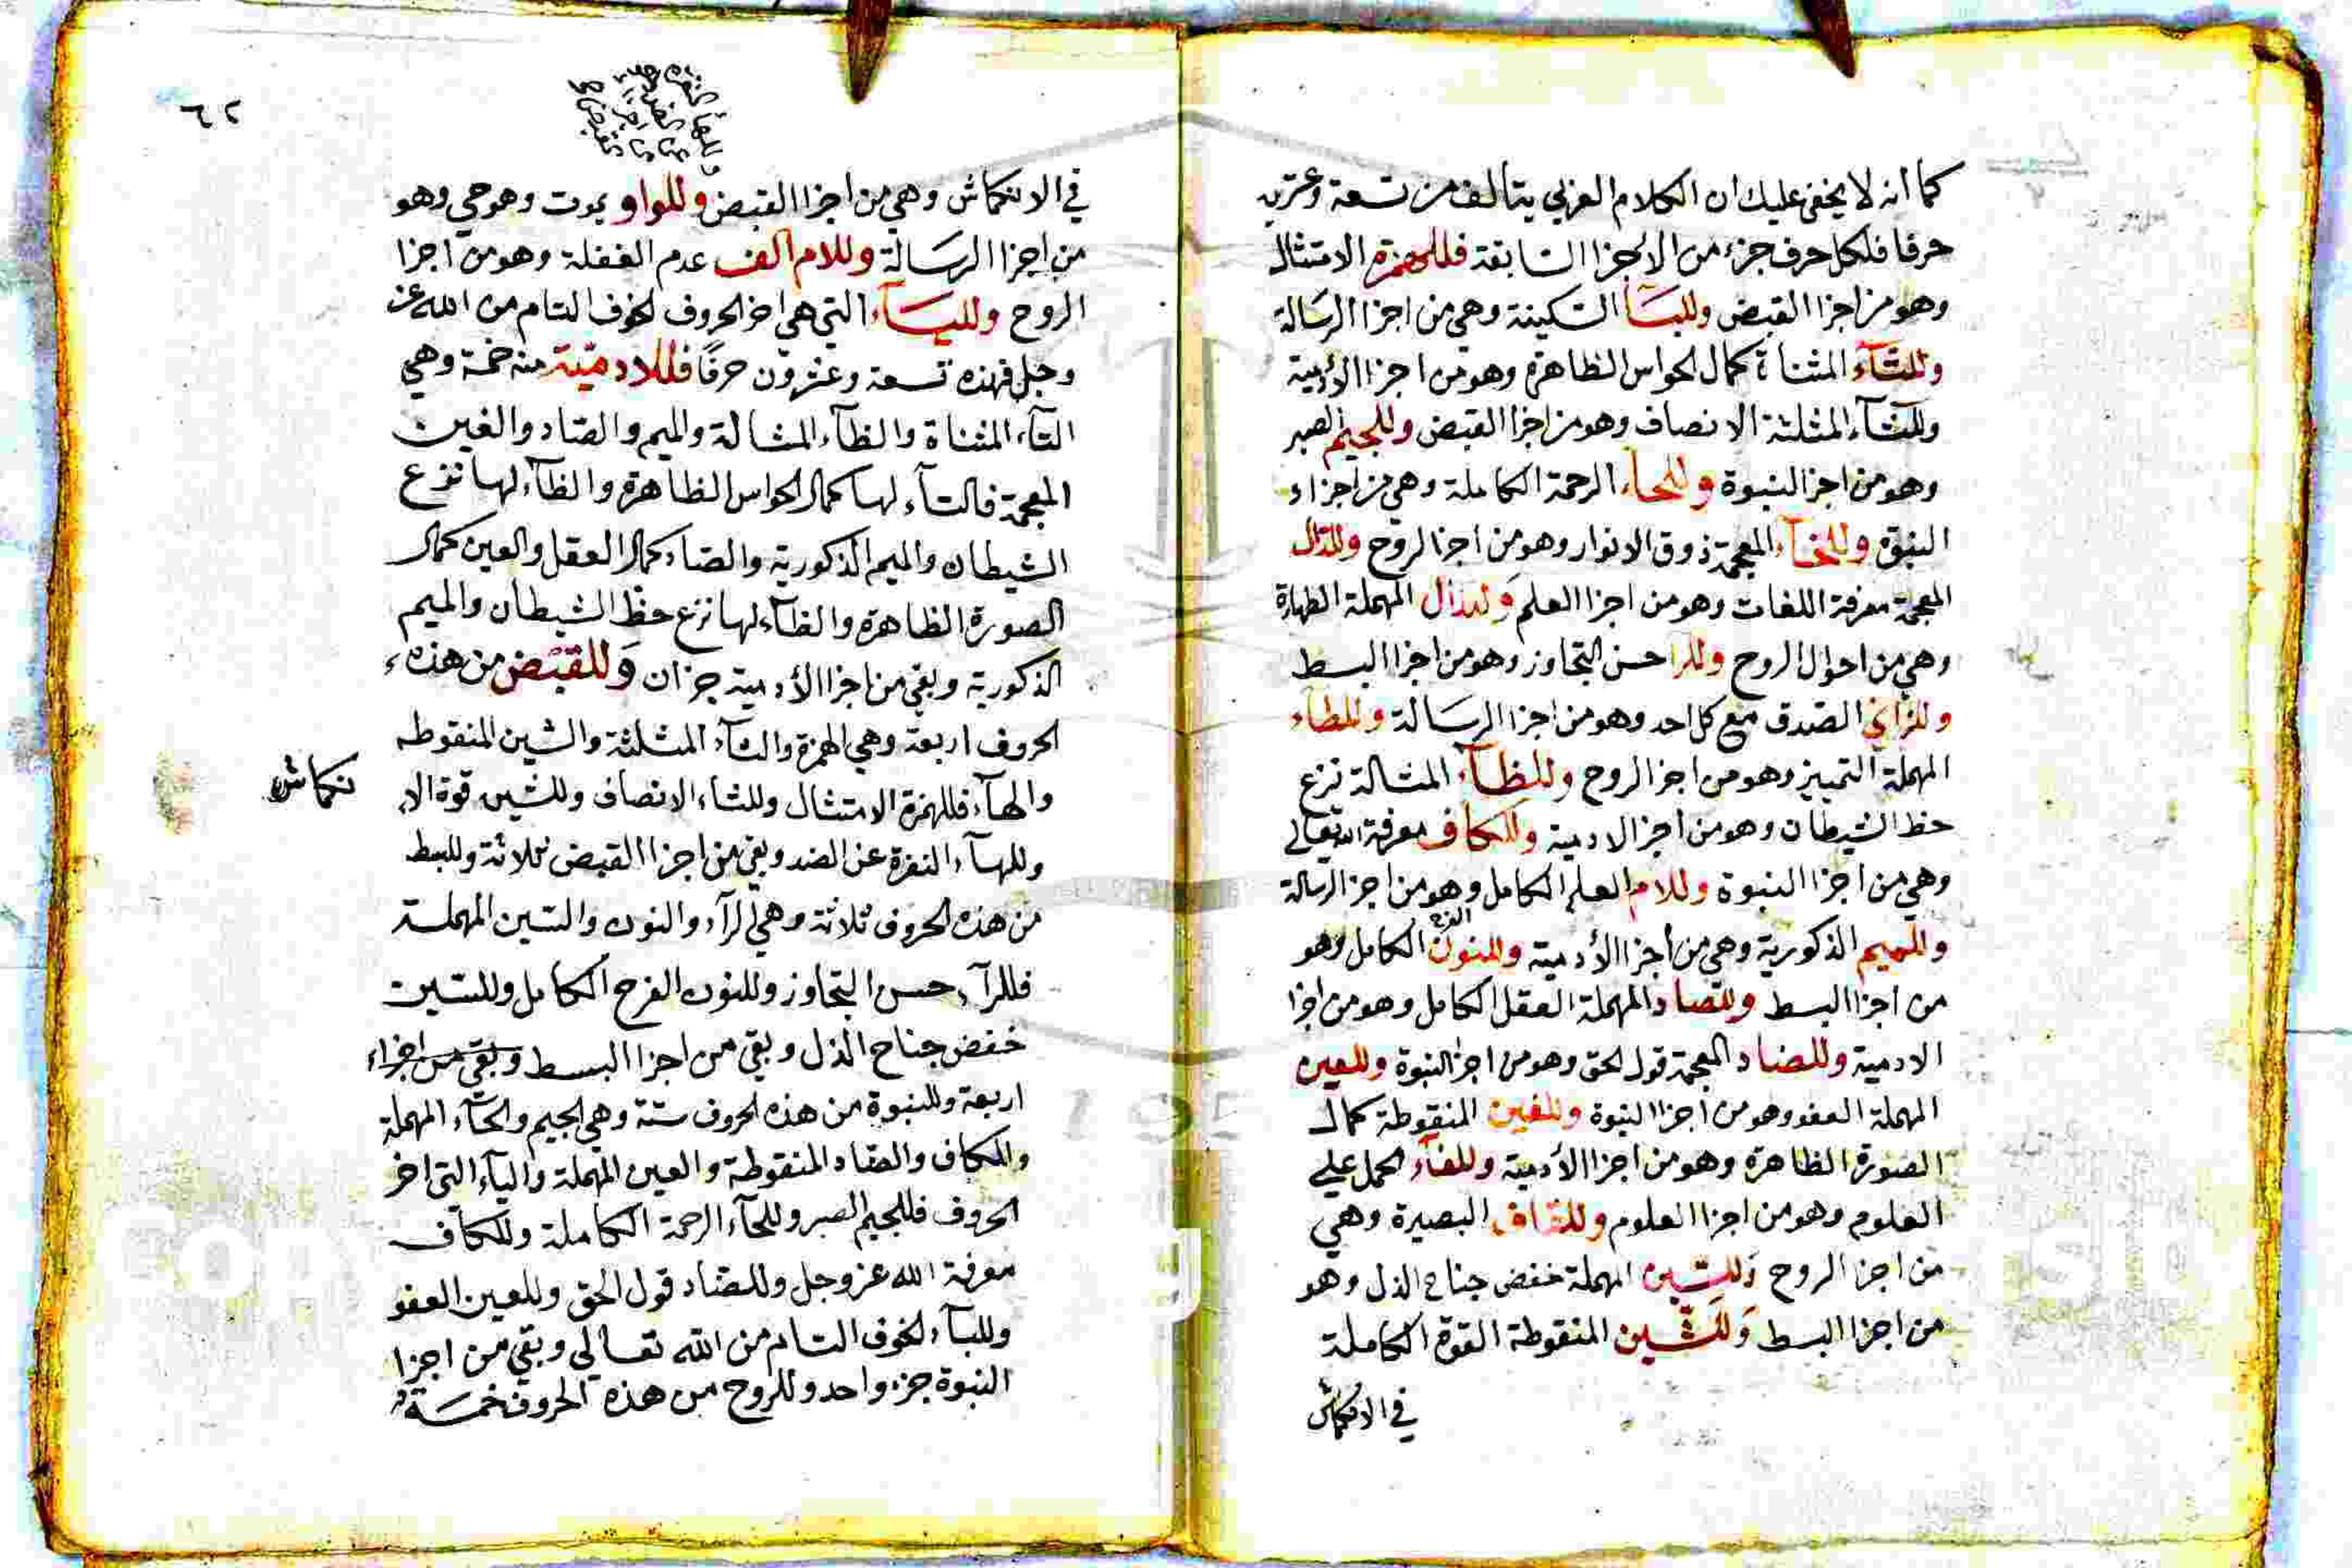 كما انه لا يخفى عليك ان الكلام العربي يتألف من تسعة وعشرين
حرفا فلكل حرف جزء من الاجزا السابقة فللهمزة الامتثال
وهو من اجزا القبض وللبآ السكينة وهي من اجزا الرسالة
وللتآء المثناة كمال الحواس الظاهرة وهو من اجزا الأدمية
وللثآء المثلثة الانصاف وهو من اجزا القبض وللجيم الصبر
وهو من اجزا النبوة وللحآء الرحمة الكاملة وهي من اجزاء
النبوة وللخآء المعجمة ذوق الانوار وهو من اجزا الروح وللذال
المعجمة معرفة اللغات وهو من اجزا العلم وللدال المهملة الطهارة
وهي من احوال الروح وللرا حسن التجاوز وهو من اجزا البسط
وللزاي الصدق مع كل احد وهو من اجزا الرسالة وللطاء
المهملة التمييز وهو من اجزا الروح وللظآء المشالة نزع
حظ الشيطان وهو من اجزا الادمية وللكاف معرفة الله تعالى
وهي من اجزا النبوة وللام العلم الكامل وهو من اجزا الرسالة
وللميم الذكورية وهي من أجزا الأدمية وللنون الفرح الكامل وهو
من اجزا البسط وللصاد المهملة العقل الكامل وهو من اجزا
الادمية وللضاد المعجمة قول الحق وهو من اجزا النبوة وللعين
المهملة العفو وهو من اجزا النبوة وللغين المنقوطة كمال
الصورة الظاهرة وهو من اجزا الأدمية وللفآء الحمل على
العلوم وهو من اجزا العلوم وللقاف البصيرة وهي
من اجزا الروح وللسين المهملة خفض جناح الذل وهو
من اجزا البسط وللشين المنقوطة القوة الكاملة
في الانكماش
٦٢
في الانكماش وهي من اجزا القبض وللواو يموت وهو حي وهو
من اجزا الرسالة وللام الف عدم الغفلة وهو من اجزا
الروح ولليـآء التي هي اخر الحروف الخوف التام من الله عز
وجل فهذه تسعة وعشرون حرفًا فللادمية منه خمسة وهي
التآء المثناة والظآء المشالة والميم والصاد والغين
المعجمة فالتآء لها كمال الحواس الظاهرة والظآء لها نزع
الشيطان والميم الذكورية والصاد كمال العقل والعين كمال
الصورة الظاهرة والظآء لها نزع حظ الشيطان والميم
الذكورية وبقي من اجزا الأدمية جزان وللقبض من هذه
الحروف اربعة وهي الهمزة والثآء المثلثة والشين المنقوطه
والهآء فللهمزة الامتثال وللثاء الانصاف وللشين قوة الا
نكماش
وللهآء النفرة عن الضد وبقي من اجزا القبض ثلاثة وللبسط
من هذه الحروف ثلاثة وهي الرآء والنون والسين المهملة
فللرآء حسن التجاوز وللنون الفرح الكامل وللسين
خفض جناح الذل وبقي من اجزا البسط وبقي من اجزاء
اربعة وللنبوة من هذه الحروف ستة وهي الجيم والحآء المهملة
والكاف والضاد المنقوطة والعين المهملة واليآء التي اخر
الحروف فللجيم الصبر وللحآء الرحمة الكاملة وللكاف
معرفة الله عز وجل وللضاد قول الحق وللعين العفو
ولليآء الخوف التام من الله تعالى وبقي من اجزا
النبوة جزء واحد وللروح من هذه الحروف خمسة